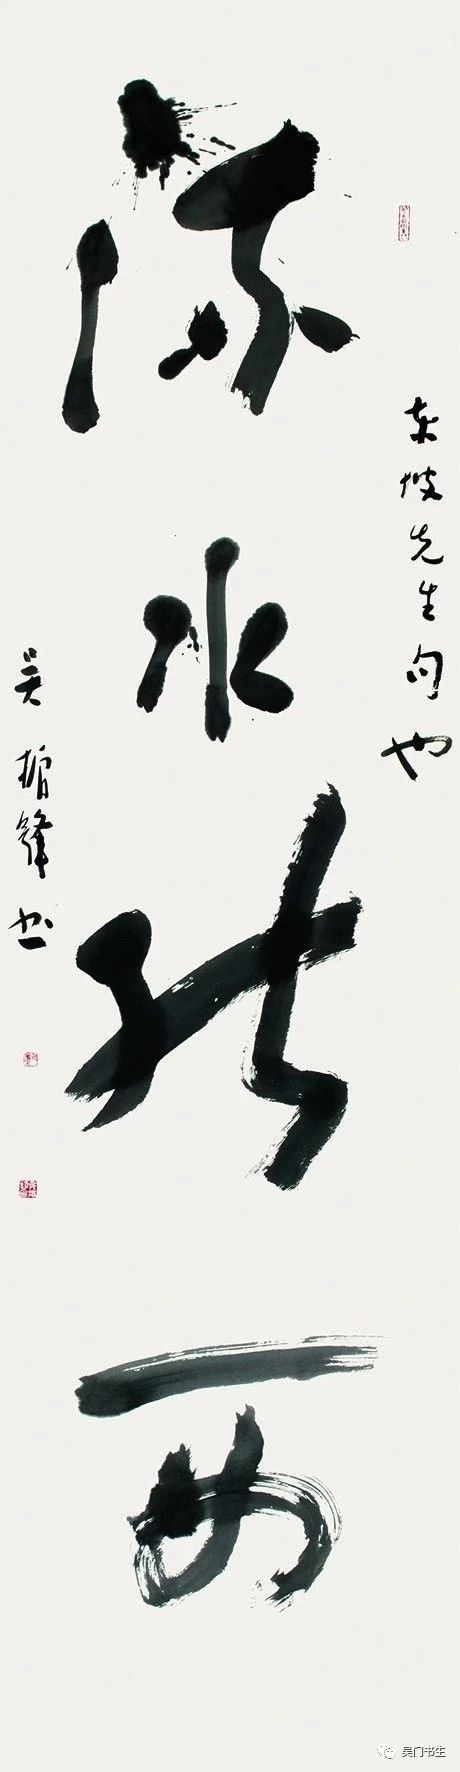 流水能西
东坡先生句也
吴锋书
吴门书生